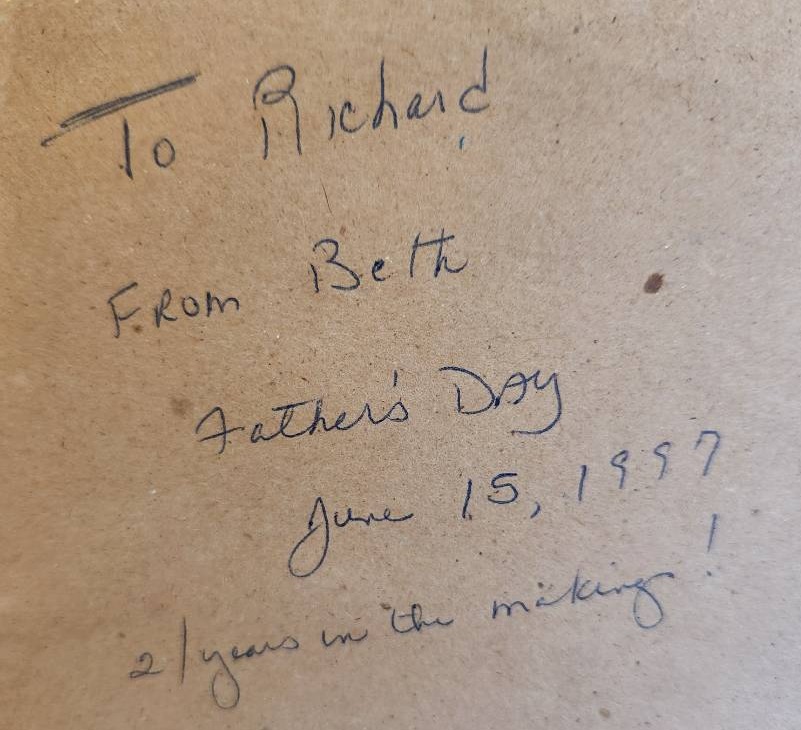 To Richard
FROM Beth
Father's DAY
June 15, 1997
21 years in the making!